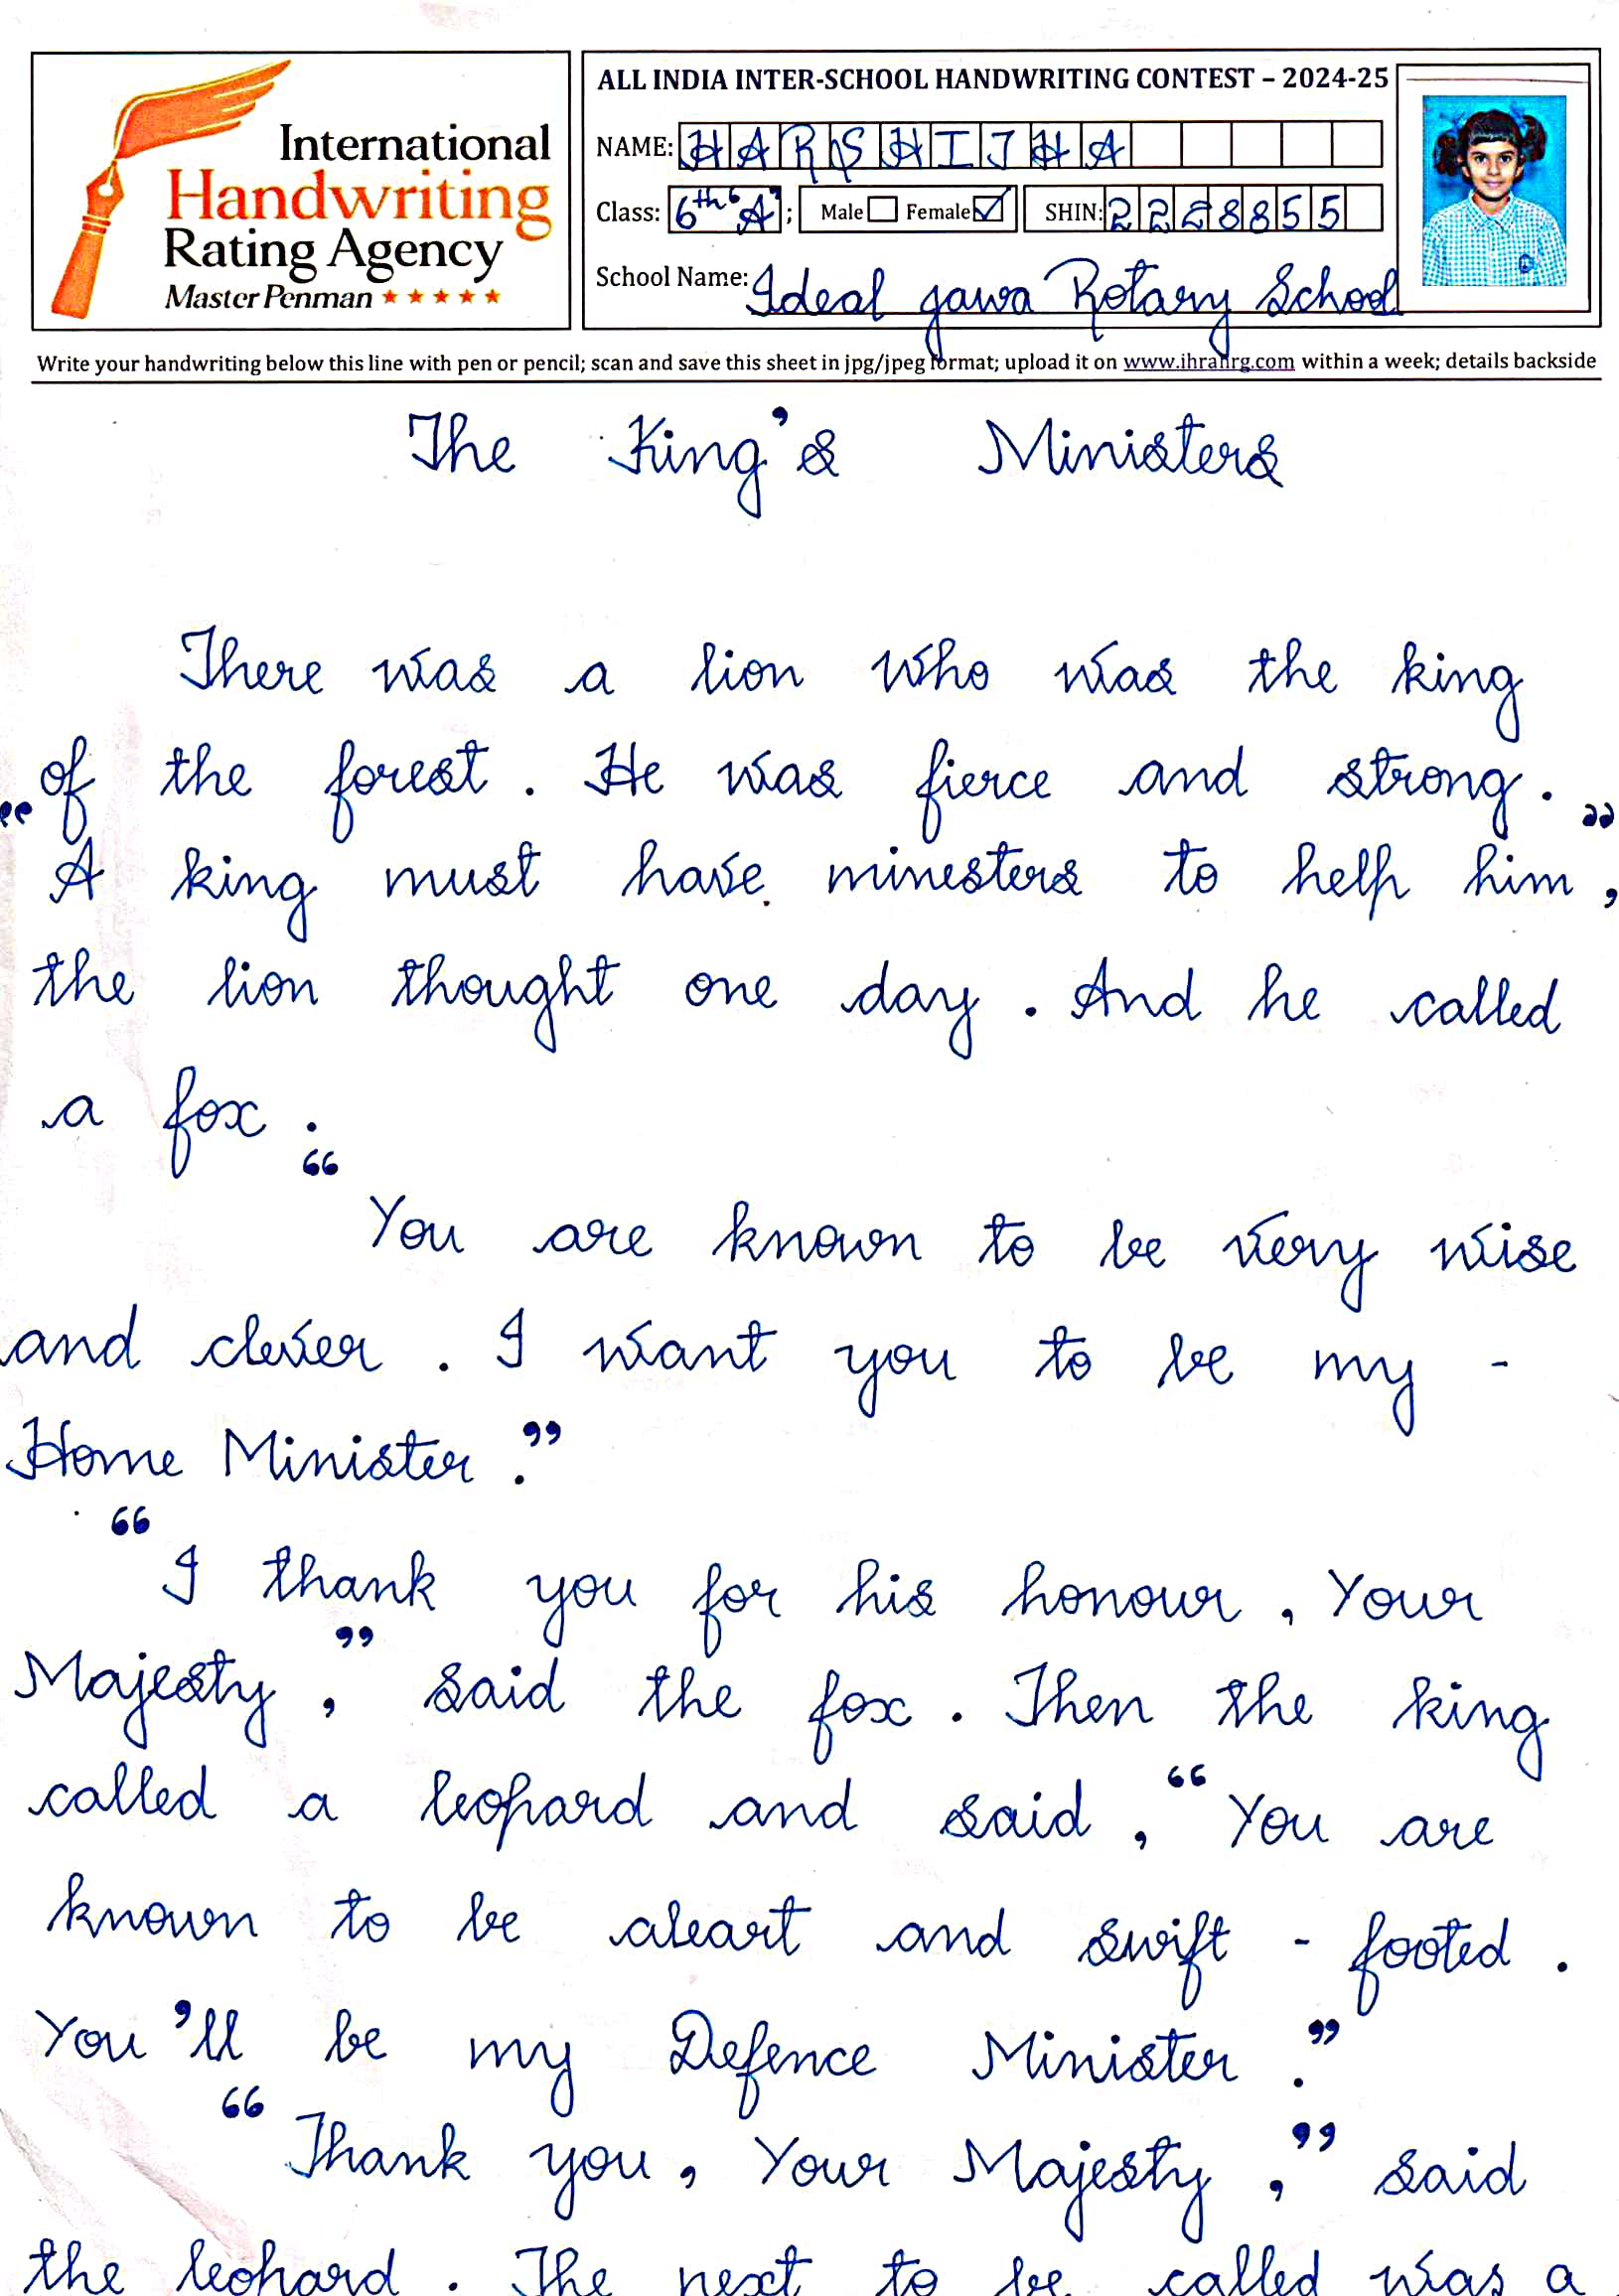 International
Handwriting
Rating Agency
Master Penman
ALL INDIA INTER-SCHOOL HANDWRITING CONTEST – 2024-25
NAME: HARSHIJHA
Class: 6th "A"; Male Female SHIN: 2228855
School Name: Ideal jawa Rotary School
Write your handwriting below this line with pen or pencil; scan and save this sheet in jpg/jpeg format; upload it on www.ihrahrg.com within a week; details backside
The King's Ministers
There was a lion who was the king
of the forest. He was fierce and strong.
"A king must have minesters to help him,"
the lion thought one day. And he called
a fox.
"You are known to be very wise
and clever. I want you to be my -
Home Minister."
"I thank you for his honour, Your
Majesty," said the fox. Then the king
called a leopard and said, "You are
known to be aleart and swift - footed.
You'll be my Defence Minister."
"Thank you, Your Majesty," said
the leopard. The next to be called was a